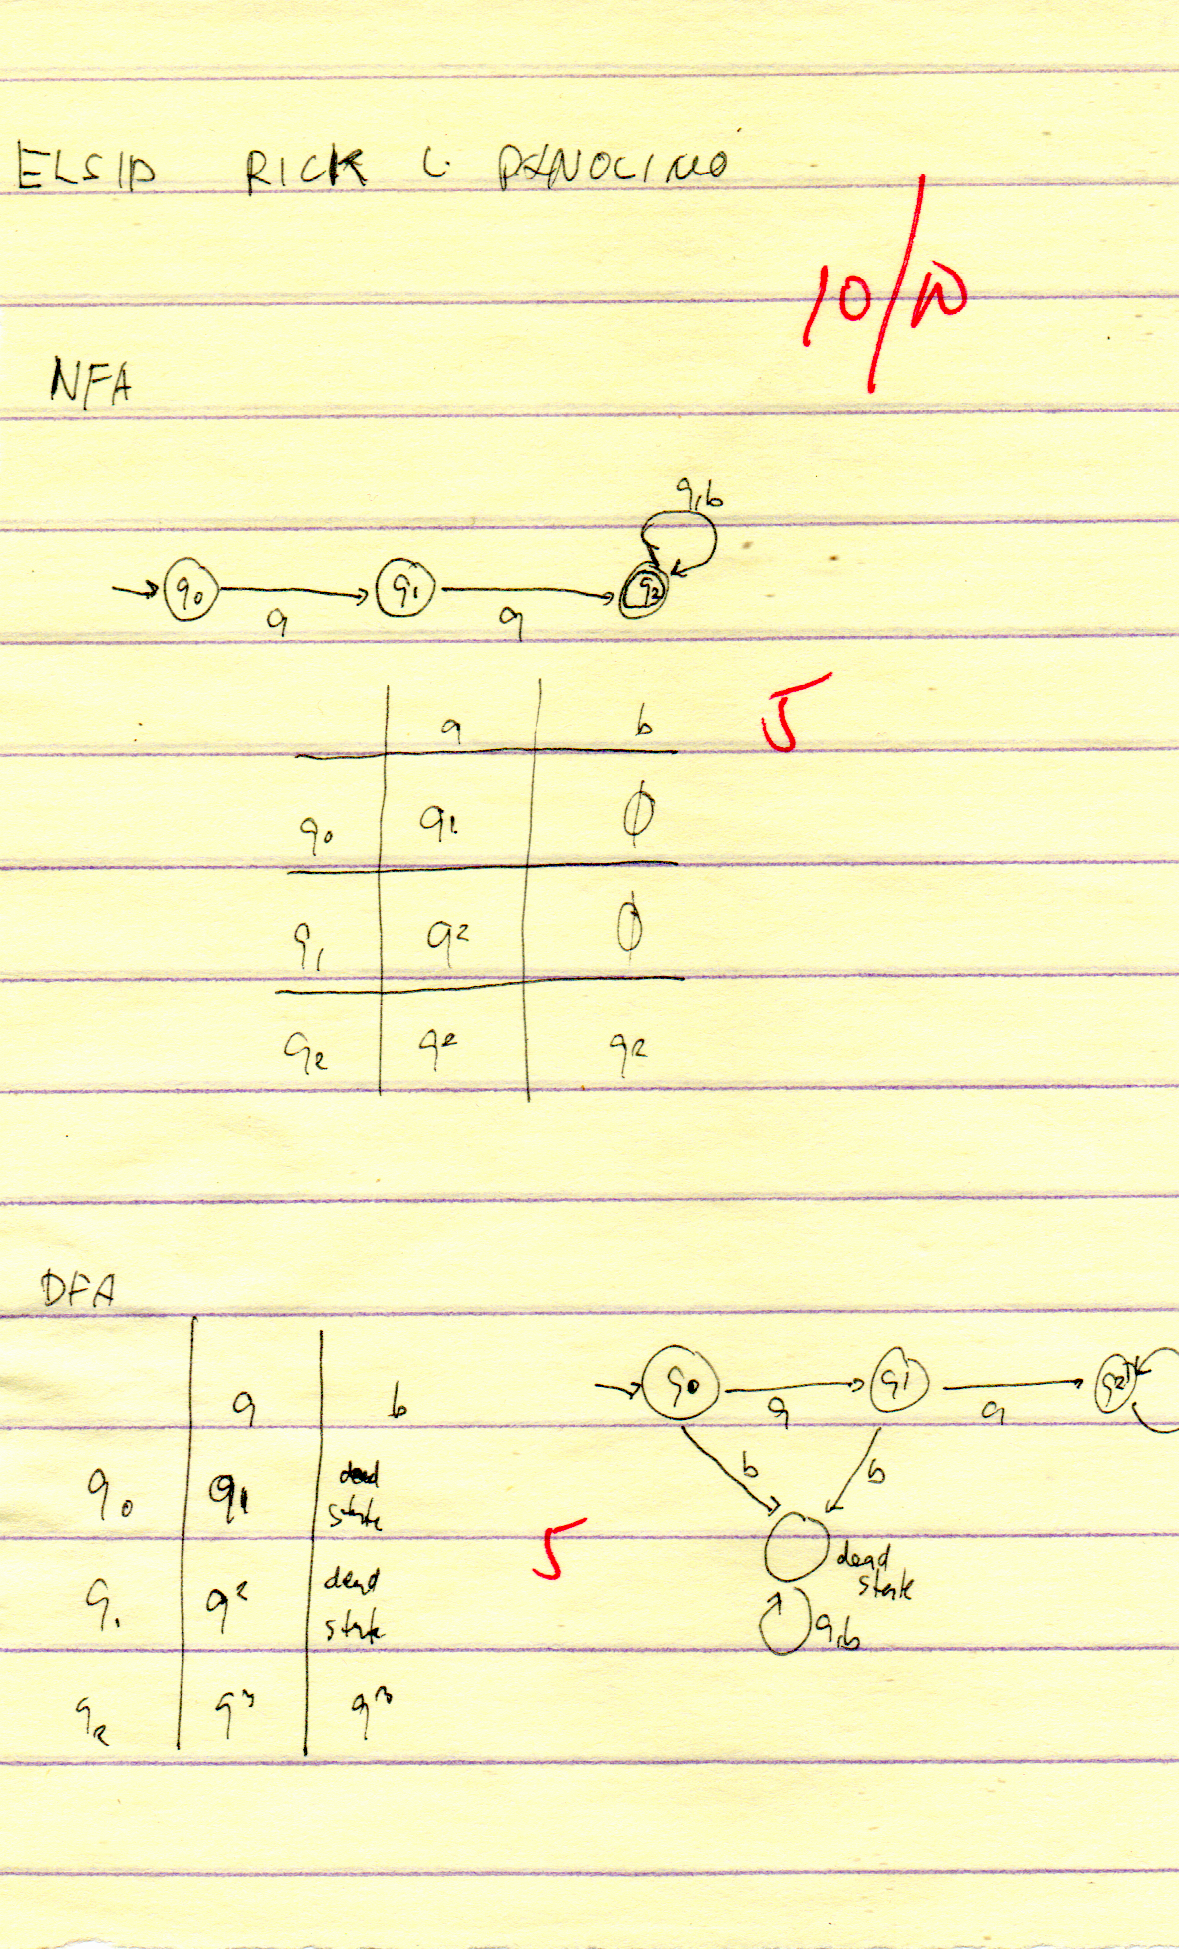 ELSID RICK L. PANOLINO
10/10
NFA
a,b
q0 q1 q2
a a
a b
5
q0 q1 ∅
q1 q2 ∅
q2 q2 q2
DFA
a b
q0 q1 dead state
q1 q2 dead state
q2 q3 q3
5
q0 q1 q2
a a
b b
dead
state
a,b